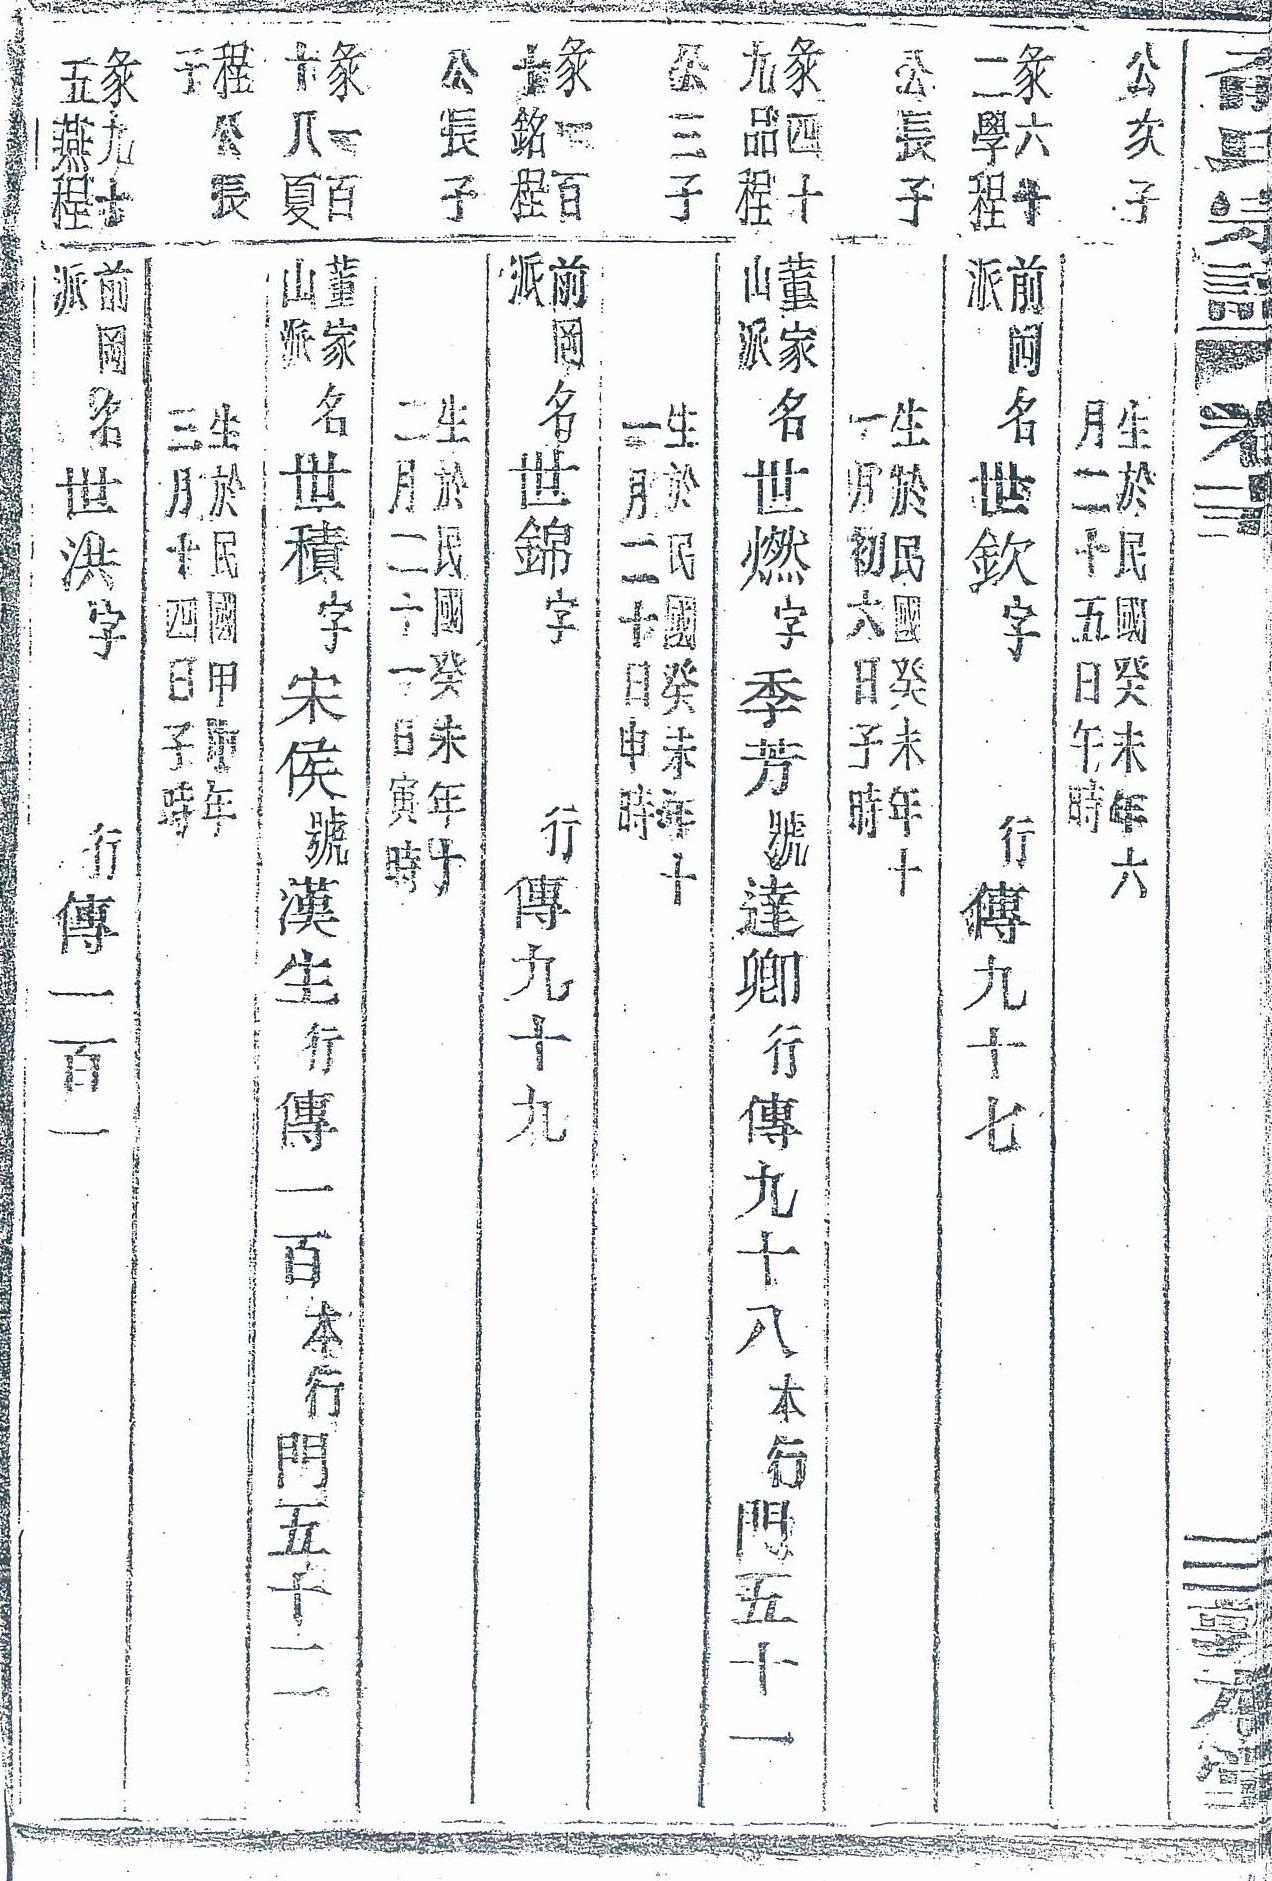 公次子
生於民國癸未年六
月二十五日午時
彖六十
二學程
前岡
派
名世欽字 行傳九十七
公長子
生於民國癸未年十
一月初六日子時
彖四十
九品程
董家
山派
名世燃字季芳號達卿行傳九十八本行門五十一
公三子
生於民國癸未年十
一月二十日申時
彖一百
十銘程
前岡
派
名世錦字 行傳九十九
公長子
生於民國癸未年十
二月二十一日寅時
彖一百
十八夏
董家
山派
名世積字宋侯號漢生行傳一百本行門五十二
程公長
子
生於民國甲申年
三月十四日子時
彖九十
五燕程
前岡
派
名世洪字 行傳一百一